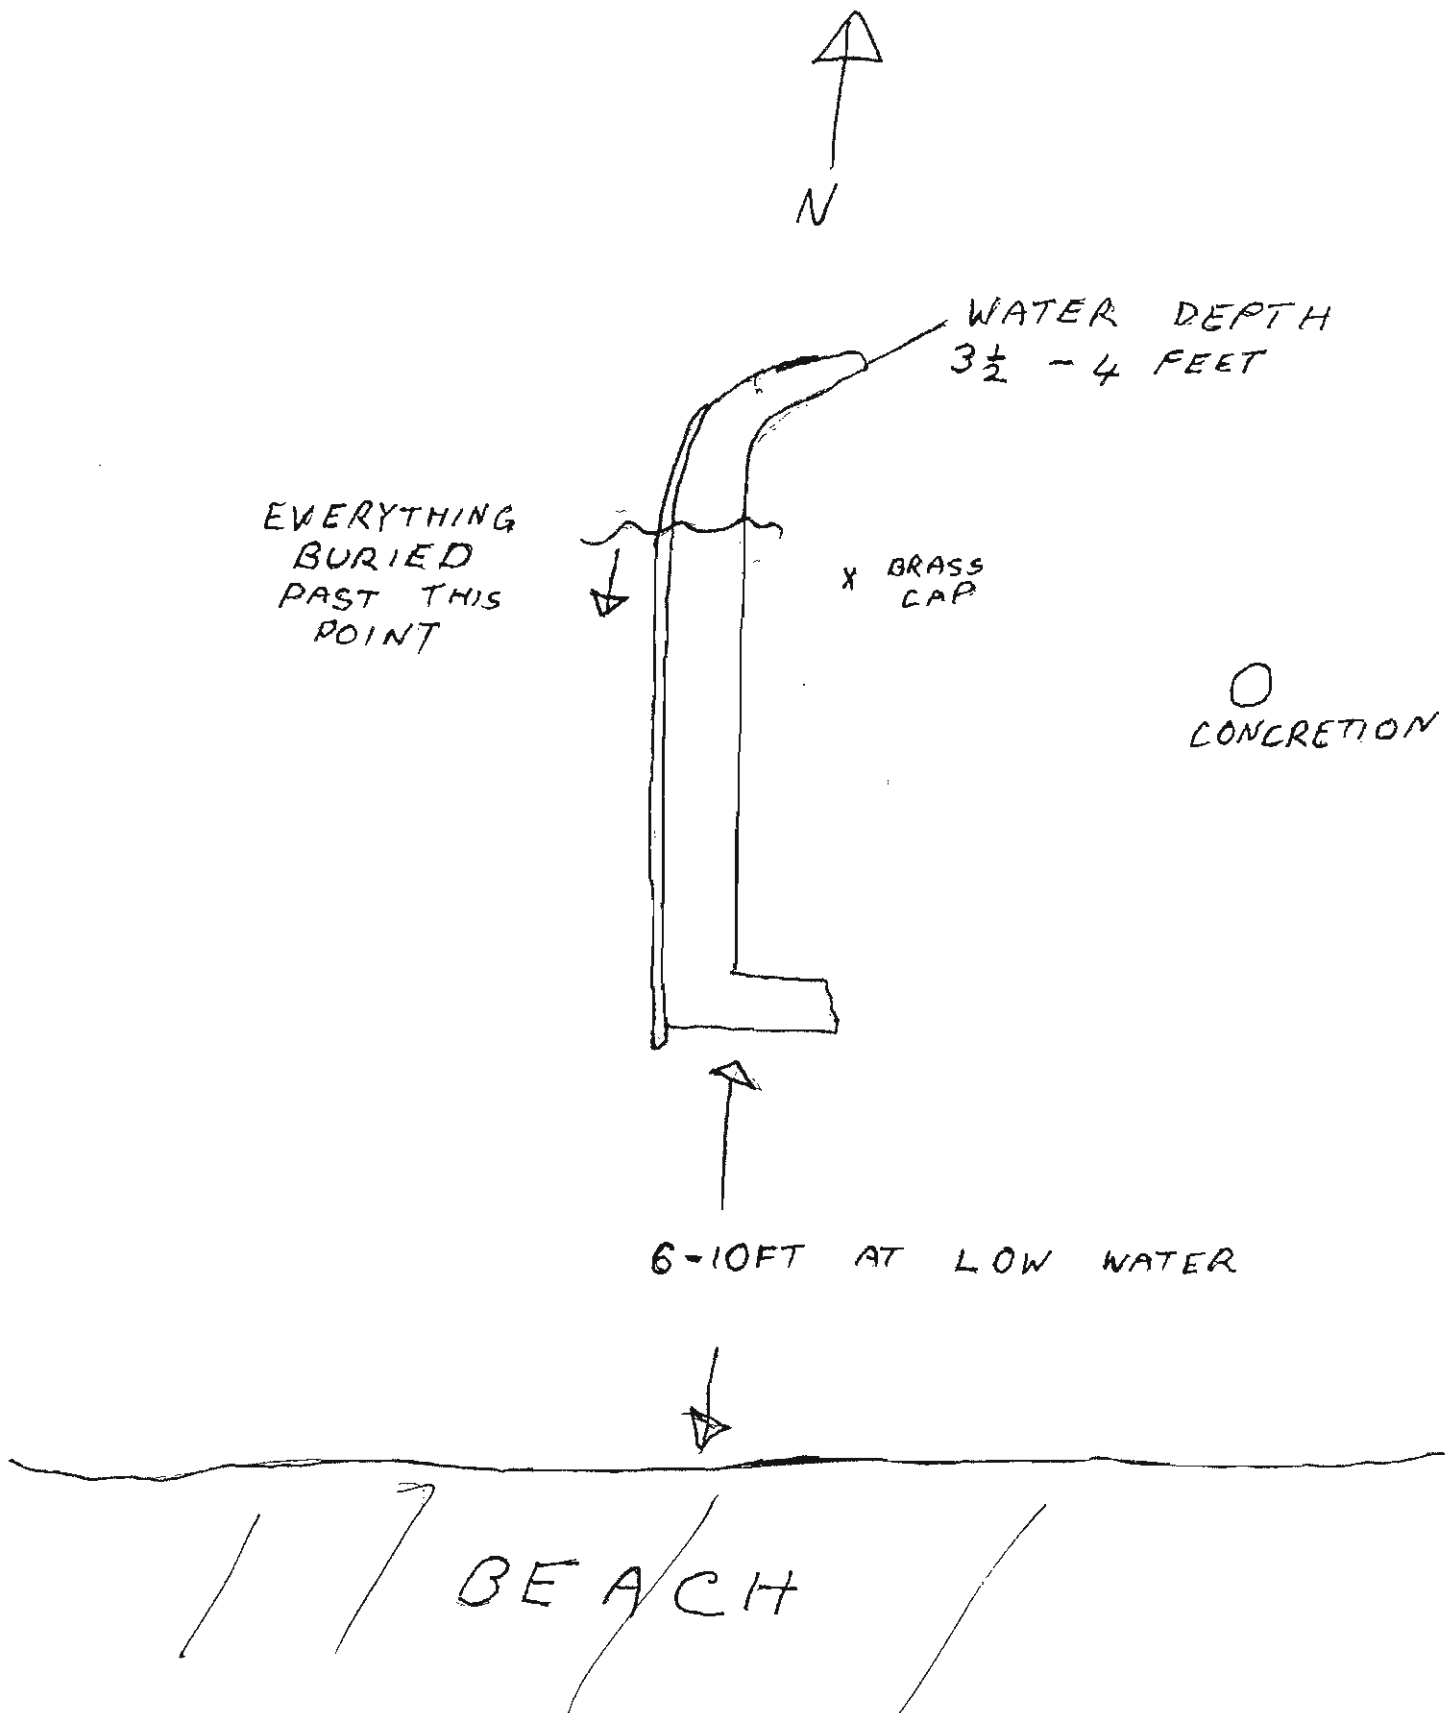 N
WATER DEPTH
3½ - 4 FEET
EVERYTHING
BURIED
PAST THIS
POINT
X BRASS
CAP
CONCRETION
6-10FT AT LOW WATER
BEACH